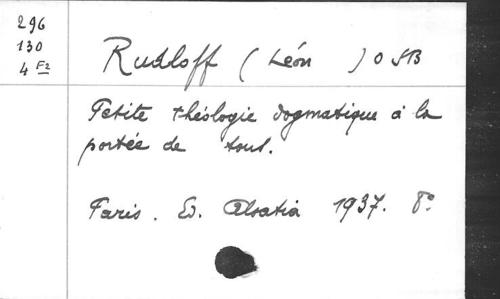 296
130
4 F2
Rudloff (Léon) O SB
Petite théologie dogmatique à la
portée de tous.
Paris. Ed. Alsatia 1937. 8°